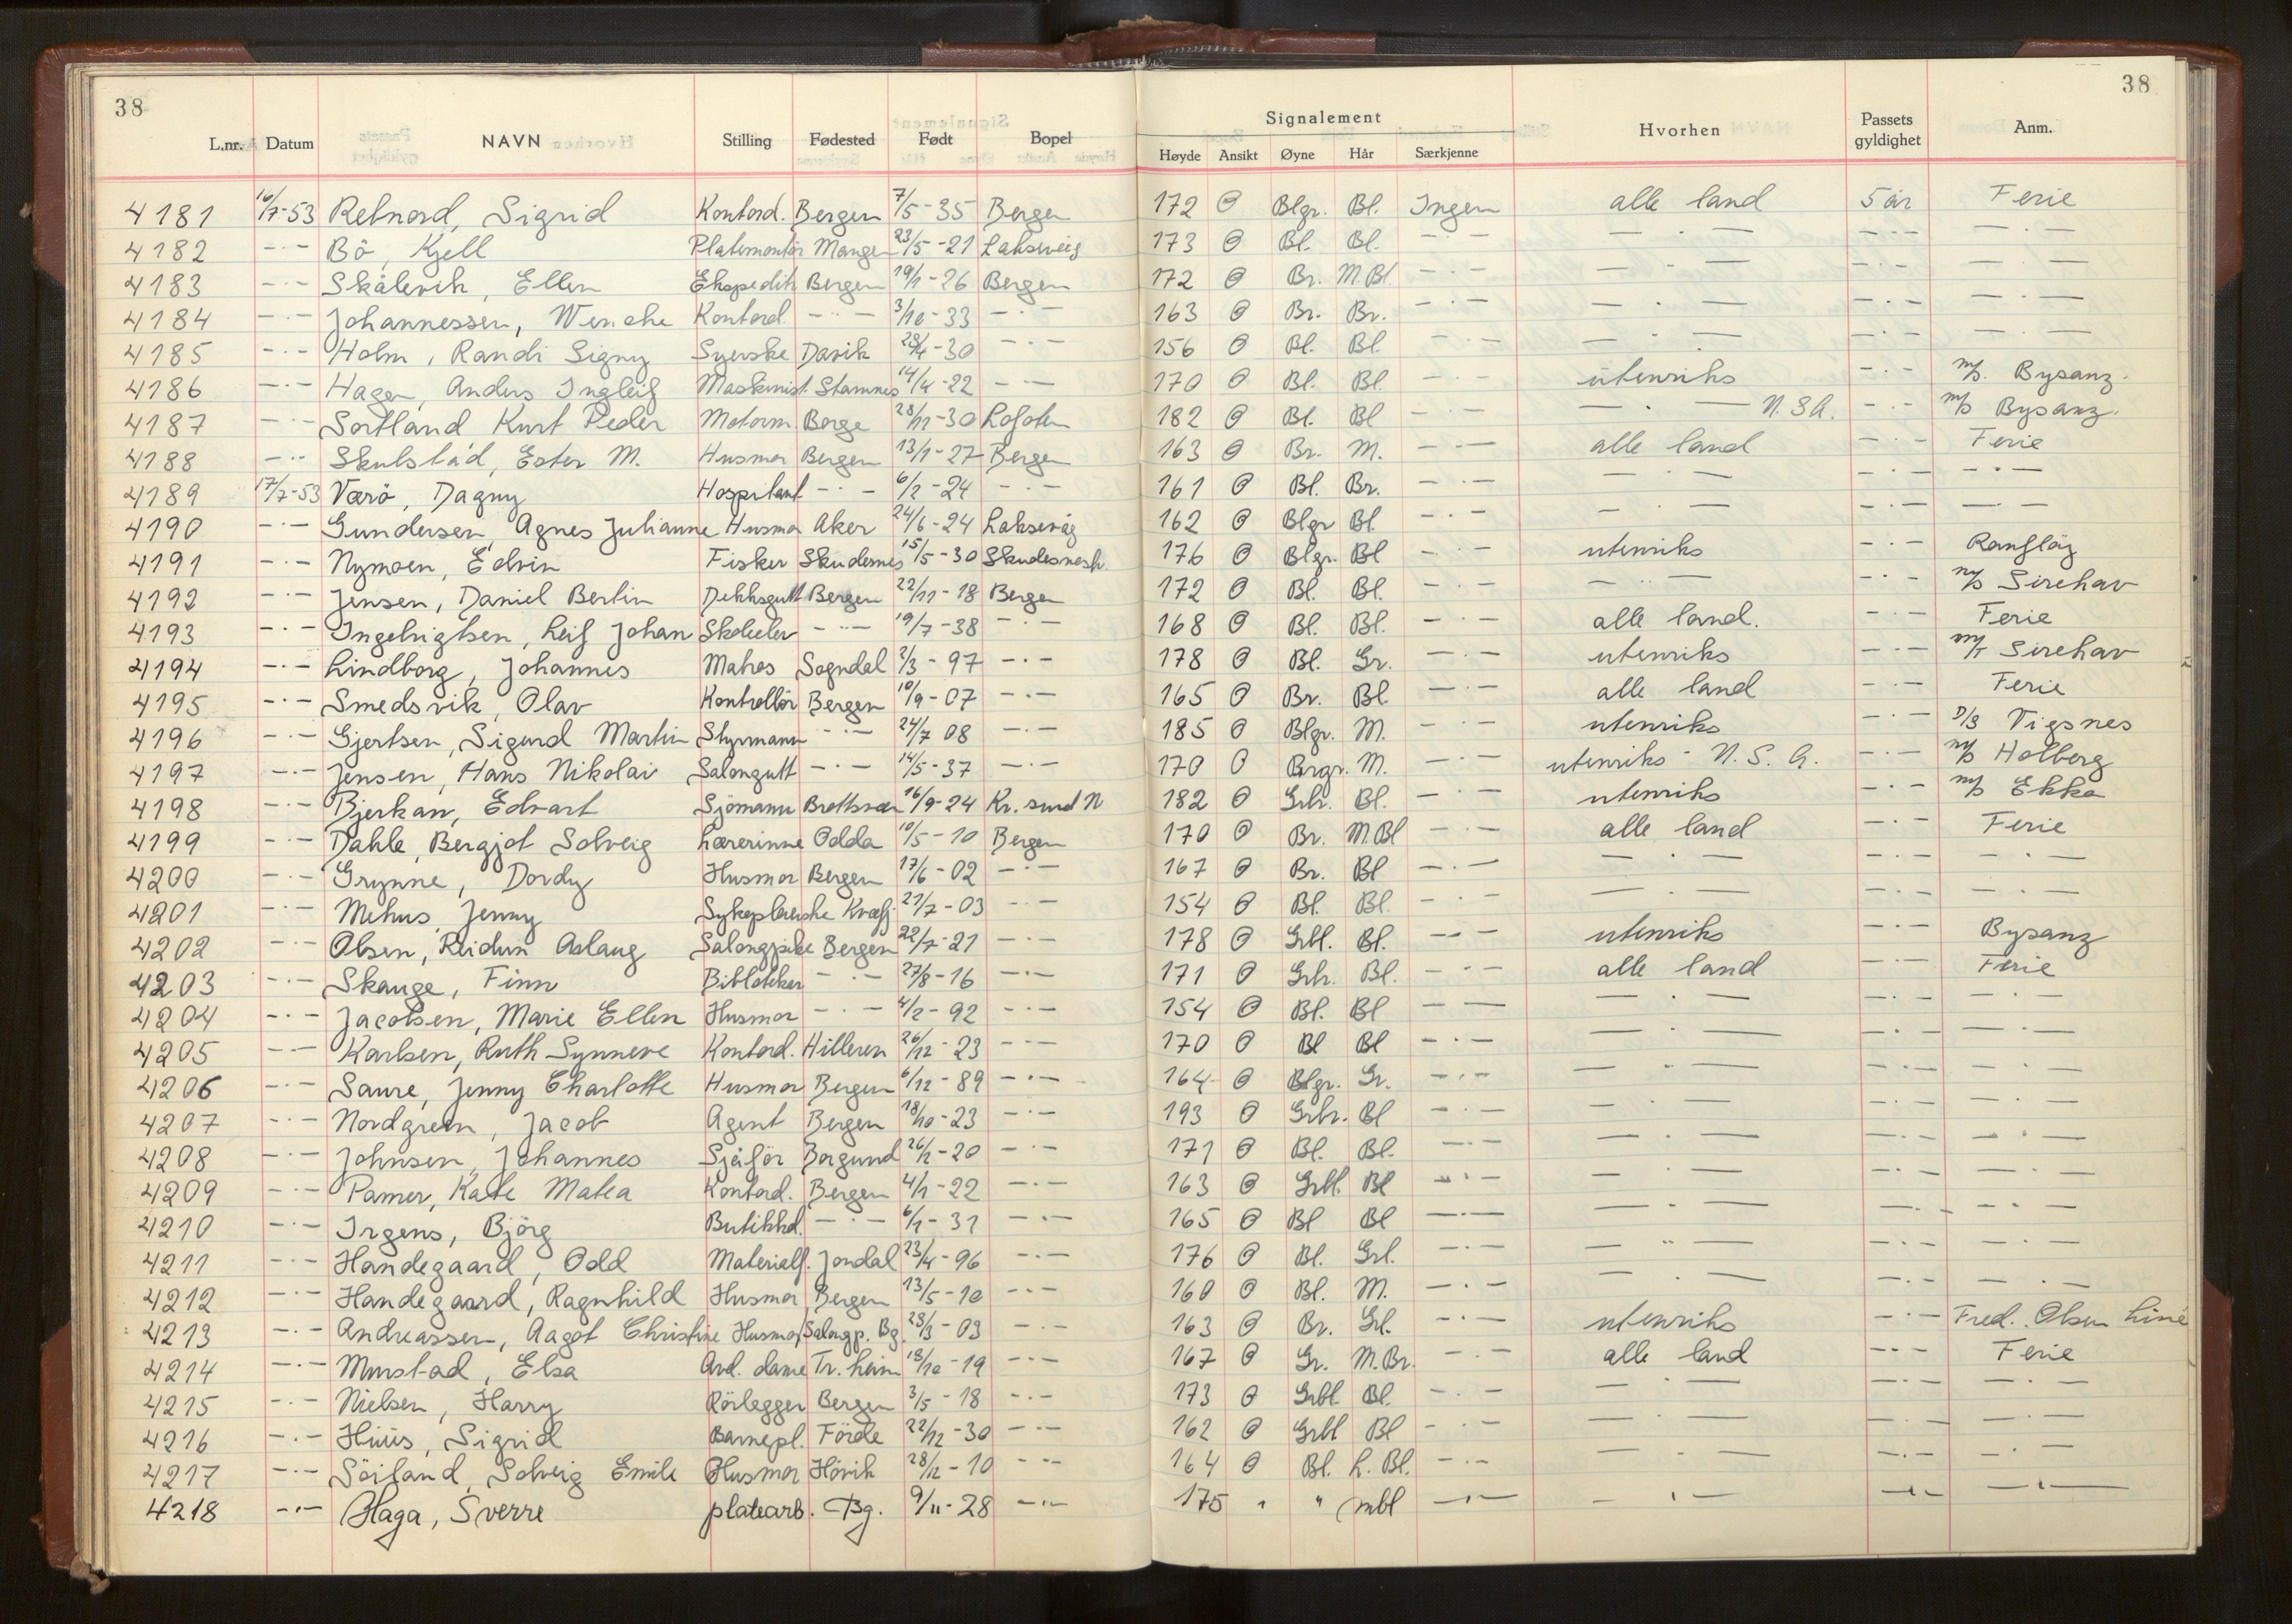 38
38
Signalement
L.nr. Datum NAVN Stilling Fødested Født Bopel Høyde Ansikt Øyne Hår Særkjenne Hvorhen Passets gyldighet Anm.
4181 16/7-53 Retnord, Sigrid Kontord. Bergen 7/5-35 Bergen 172 O Blgr. Bl. Ingen alle land 5 år Ferie
4182 -·- Bö, Kjell Platemontör Manger 23/5-21 Laksevåg 173 O Bl. Bl. -·- -·- -·- -·-
4183 -·- Skålevik, Ellen Ekspedit. Bergen 19/1-26 Bergen 172 O Br. M.Bl. -·- -·- -·- -·-
4184 -·- Johannessen, Wenche Kontord. -·- 3/10-33 -·- 163 O Br. Br. -·- -·- -·-
4185 -·- Holm, Randi Signy Syerske Davik 28/4-30 -·- 156 O Bl. Bl. -·- -·- -·- -·-
4186 -·- Hagen, Anders Ingleif Maskinist Stamnes 14/4-22 -·- 170 O Bl. Bl. -·- utenriks -·- m/s. Bysanz.
4187 -·- Sortland Kurt Peder Motorm. Borge 28/11-30 Lofoten 182 O Bl. Bl -·- -·- U.S.A. -·- m/s Bysanz.
4188 -·- Skulstad, Ester M. Husmor Bergen 13/1-27 Bergen 163 O Br. M. -·- alle land -·- Ferie
4189 17/7-53 Værö, Dagny Hospitant -·- 6/2-24 -·- 161 O Bl. Br. -·- -·- -·- -·-
4190 -·- Gundersen, Agnes Julianne Husmor Aker 24/6-24 Laksevåg 162 O Blgr Bl. -·- -·- -·- -·-
4191 -·- Nymoen, Edvin Fisker Skudesnes 15/5-30 Skudesnesh. 176 O Blgr. Bl -·- utenriks -·- Ranfläg
4192 -·- Jensen, Daniel Bertin Dekksgutt Bergen 22/11-18 Bergen 172 O Bl. Bl. -·- -·- -·- m/s Sirehav
4193 -·- Ingebrigtsen, Leif Johan Skoleelev -·- 19/7-38 -·- 168 O Bl. Bl. -·- alle land. -·- Ferie
4194 -·- Lindborg, Johannes Matros Sogndal 2/3-97 -·- 178 O Bl. Gr. -·- utenriks -·- m/t Sirehav
4195 -·- Smedsvik, Olav Kontrollör Bergen 10/9-07 -·- 165 O Br. Bl. -·- alle land -·- Ferie
4196 -·- Gjertsen, Sigurd Martin Styrmann -·- 24/7 08 -·- 185 O Blgr. M. -·- utenriks -·- D/S Vigsnes
4197 -·- Jensen, Hans Nikolai Salongutt -·- 14/5-37 -·- 170 O Brgr. M. -·- utenriks - U.S.A. -·- m/s Holberg
4198 -·- Bjerkan, Edvart Sjömann Brettsvær 16/9-24 Kr.sund N 182 O Grbr. Bl. -·- utenriks -·- m/s Ekka
4199 -·- Dahle, Bergjot Solveig Lærerinne Odda 10/5-10 Bergen 170 O Br. M.Bl -·- alle land -·- Ferie
4200 -·- Grynne, Dordy Husmor Bergen 17/6-02 -·- 167 O Br. Bl -·- -·- -·- -·-
4201 -·- Mehus, Jenny Sykepleierske Kvæfj. 21/7-03 -·- 154 O Bl. Bl. -·- -·- -·- -·-
4202 -·- Olsen, Reidun Aslaug Salongpike Bergen 22/7-21 -·- 178 O Grbl. Bl. -·- utenriks -·- Bysanz
4203 -·- Skauge, Finn Biblioteker -·- 27/8-16 -·- 171 O Grbr. Bl. -·- alle land -·- Ferie
4204 -·- Jacobsen, Marie Ellen Husmor -·- 4/2-92 -·- 154 O Bl. Bl -·- -·- -·- -·-
4205 -·- Karlsen, Ruth Synneve Kontord. Hilleren 26/12-23 -·- 170 O Bl Bl -·- -·- -·- -·-
4206 -·- Saure, Jenny Charlotte Husmor Bergen 6/12-89 -·- 164 O Blgr. Gr. -·- -·- -·- -·-
4207 -·- Nordgreen, Jacob Agent Bergen 18/10-23 -·- 193 O Grbr. Bl -·- -·- -·- -·-
4208 -·- Johnsen, Johannes Sjåför Borgund 26/2-20 -·- 171 O Bl. Bl. -·- -·- -·- -·-
4209 -·- Pamer, Kate Matea Kontord. Bergen 4/1-22 -·- 163 O Grbl. Bl -·- -·- -·- -·-
4210 -·- Irgens, Björg Butikkd. -·- 6/1-31 -·- 165 O Bl Bl -·- -·- -·- -·-
4211 -·- Handegaard, Odd Materialf. Jondal 23/4-96 -·- 176 O Bl. Grl. -·- -·- -·- -·-
4212 -·- Handegaard, Ragnhild Husmor Bergen 13/5-10 -·- 160 O Bl. M. -·- -·- -·- -·-
4213 -·- Andreassen, Aagot Christine Husmor/Salongp. Bg. 28/3-03 -·- 163 O Br. Grl. -·- utenriks -·- Fred. Olsen Line
4214 -·- Murstad, Elsa Avd. dame Tr.heim 18/10-19 -·- 167 O Gr. M.Br. -·- alle land -·- Ferie
4215 -·- Nielsen, Harry Rörlegger Bergen 3/5-18 -·- 173 O Grbl Bl. -·- -·- -·- -·-
4216 -·- Hüüs, Sigrid Barnepl. Förde 22/12-30 -·- 162 O Grbl Bl -·- -·- -·- -·-
4217 -·- Söiland, Solveig Emile Husmor Hövik 28/12-10 -·- 164 O Bl. L. Bl. -·- -·- -·- -·-
4218 -·- Haga, Sverre platearb. Bg. 9/11-28 -·- 175 " " mbl -·- -·- -·- -·-